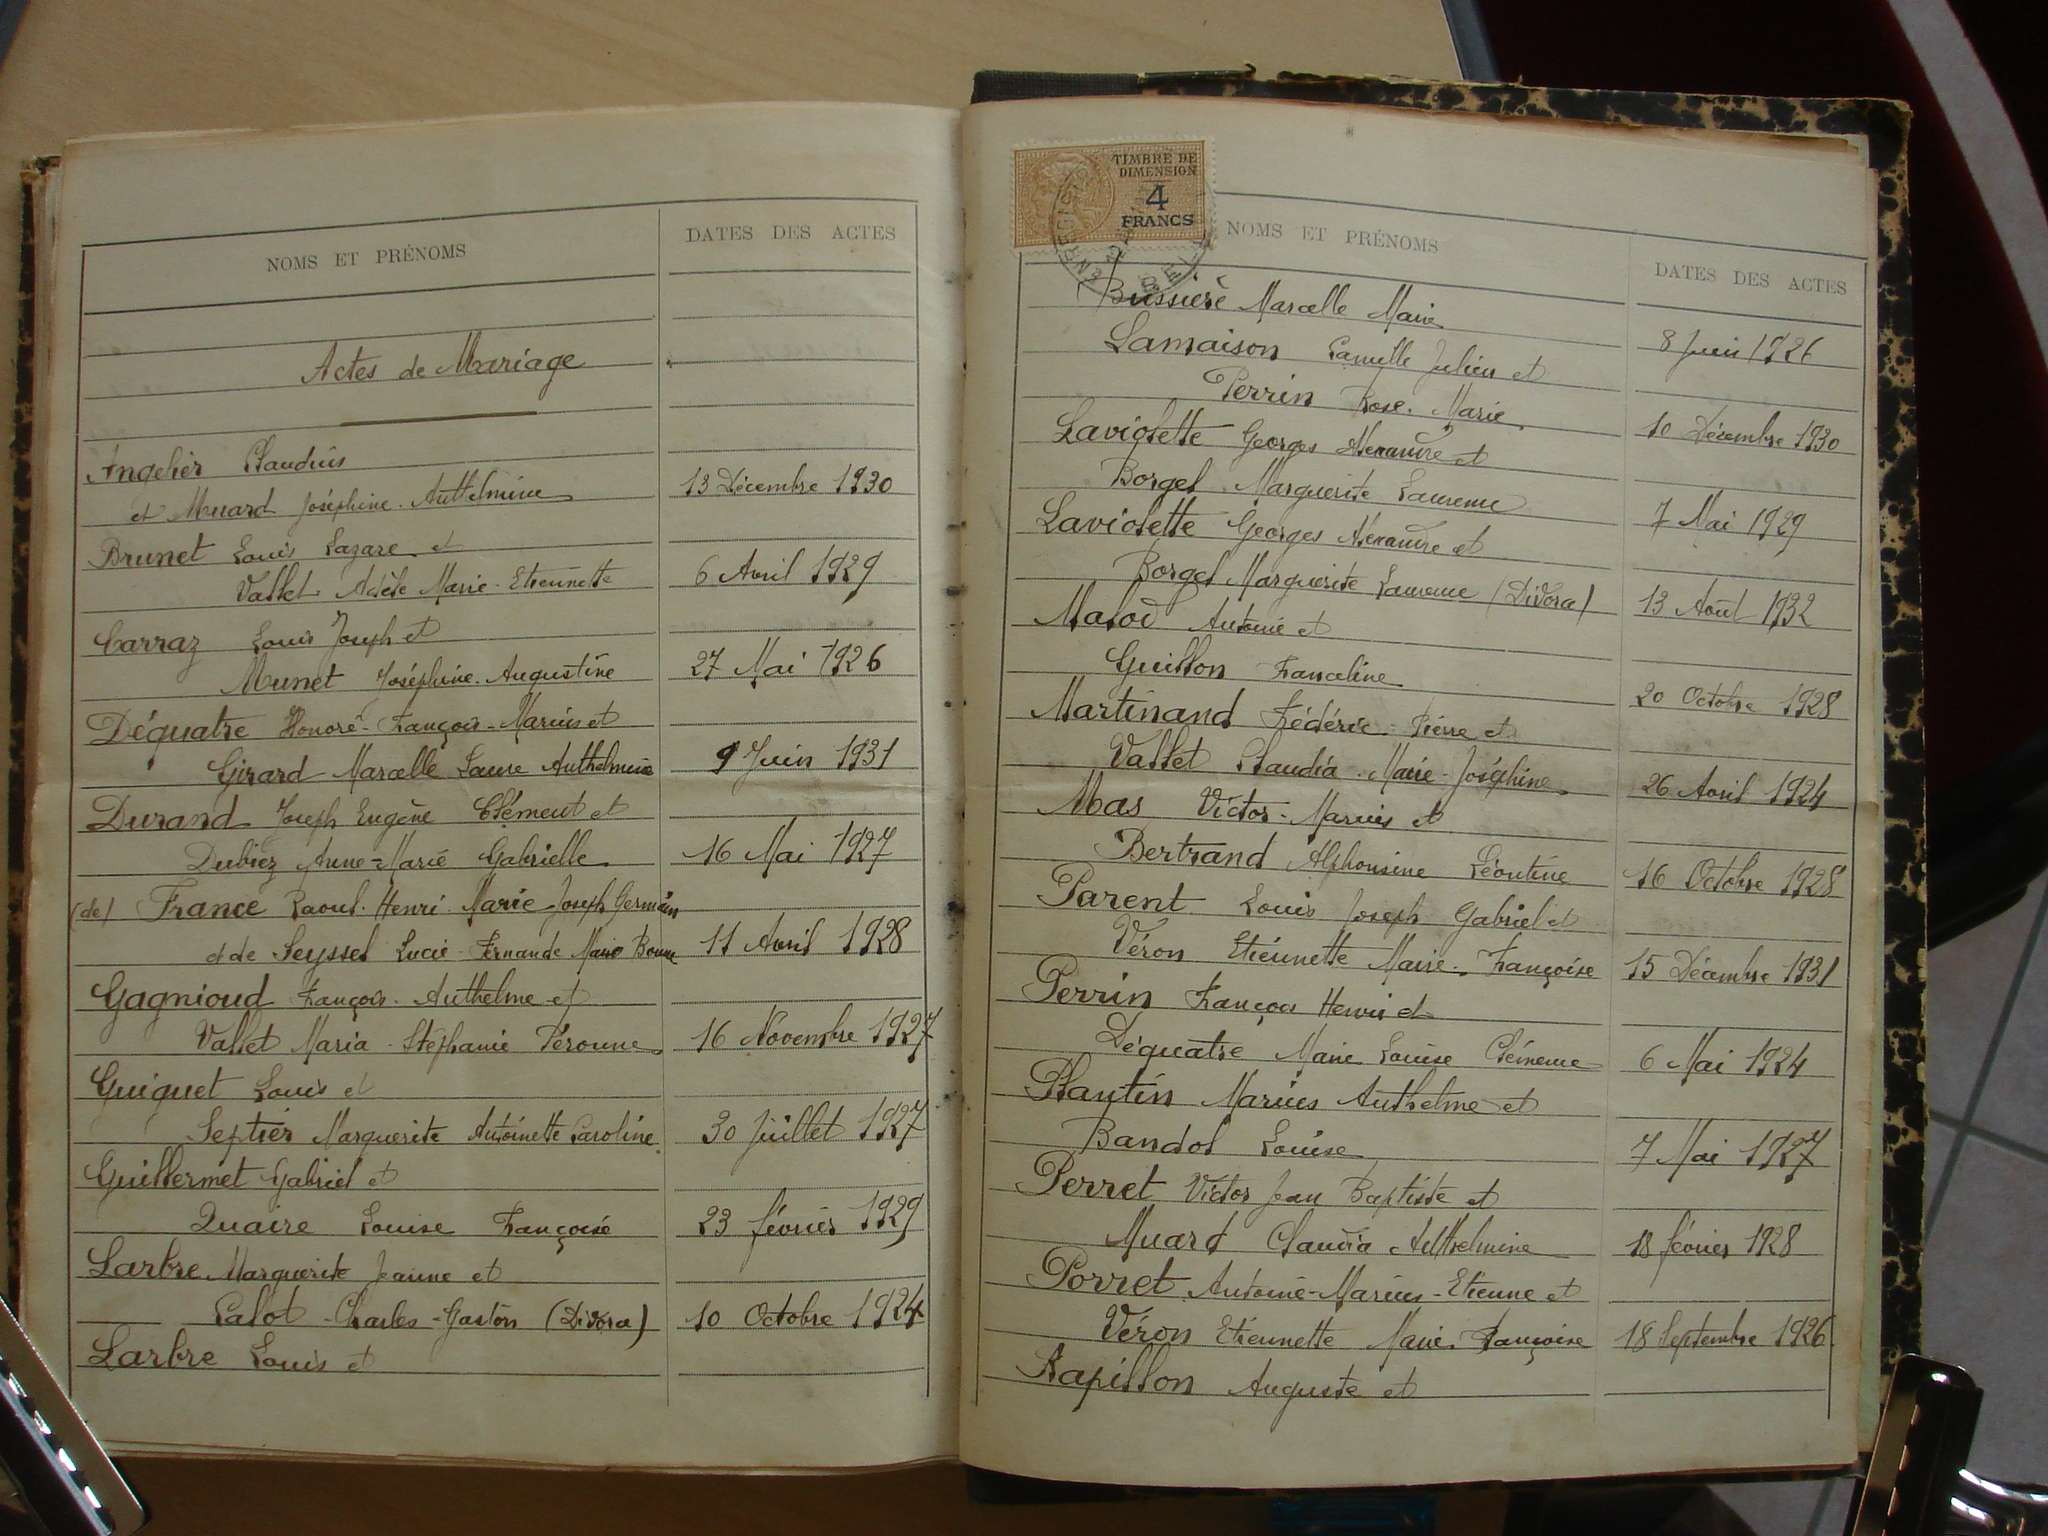 NOMS ET PRÉNOMS
DATES DES ACTES
Actes de Mariage
Angelier Claudius
et Muard Joséphine-Anthelmine 13 Décembre 1930
Brunet Louis Lazare et
Vallet Adèle Marie-Etiennette 6 Avril 1929
Carraz Louis Joseph et
Munet Joséphine-Augustine 27 Mai 1926
Déquatre Honoré-François-Marius et
Girard Marcelle Laure Anthelmine 9 Juin 1931
Durand Joseph Eugène Clément et
Dubiez Anne-Marie Gabrielle 16 Mai 1927
(de) France Raoul-Henri-Marie-Joseph Germain
et de Seyssel Lucie-Fernande Marie Bonne 11 Avril 1928
Gagnioud François-Anthelme et
Vallet Maria-Stéphanie Péronne 16 Novembre 1927
Guiguet Louis et
Septier Marguerite Antoinette Caroline 30 Juillet 1927
Guillermet Gabriel et
Quaire Louise Françoise 23 février 1929
Larbre Marguerite Jeanne et
Lalot Charles-Gaston (Divorce) 10 Octobre 1924
Larbre Louis et
TIMBRE DE
DIMENSION
4
FRANCS
NOMS ET PRÉNOMS
DATES DES ACTES
Bussière Marcelle Marie 8 Juin 1926
Lamaison Camille Julien et
Perrin Rose-Marie 10 Décembre 1930
Laviolette Georges Alexandre et
Borgel Marguerite Laurence 7 Mai 1929
Laviolette Georges Alexandre et
Borgel Marguerite Laurence (Divorce) 13 Août 1932
Malod Antoine et
Guillon Franceline 20 Octobre 1928
Martinand Frédéric-Pierre et
Vallet Claudia-Marie-Joséphine 26 Avril 1924
Mas Victor-Marius et
Bertrand Alphonsine Léontine 16 Octobre 1928
Parent Louis Joseph Gabriel et
Véron Etiennette Marie-Françoise 15 Décembre 1931
Perrin François Henri et
Déquatre Marie Louise Clémence 6 Mai 1924
Plantin Marius Anthelme et
Bandol Louise 7 Mai 1927
Perret Victor Jean Baptiste et
Muard Claudia Anthelmine 18 février 1928
Porret Antoine-Marius-Etienne et
Véron Etiennette Marie-Françoise 18 Septembre 1926
Rapillon Auguste et